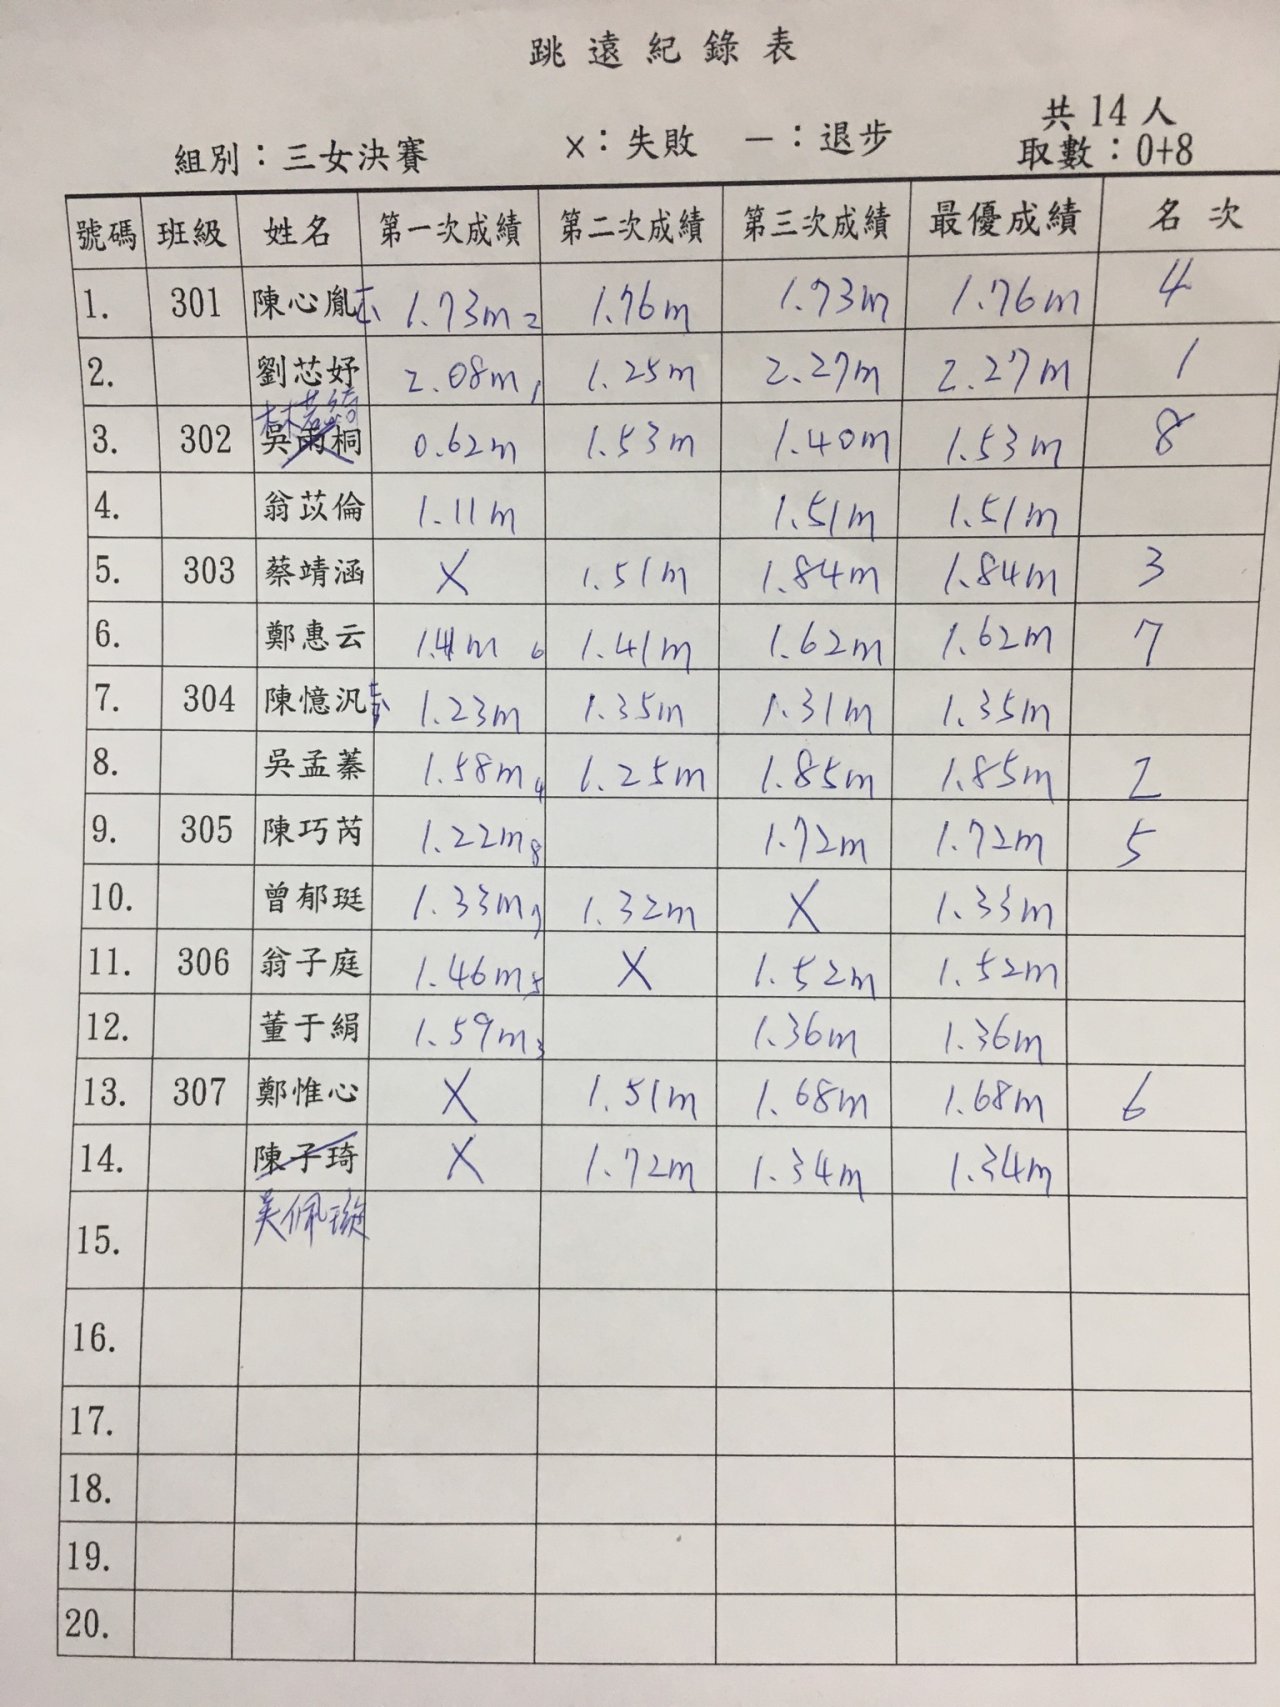 跳遠紀錄表
共14人
組別：三女決賽 ×：失敗 －：退步 取數：0+8
號碼 班級 姓名 第一次成績 第二次成績 第三次成績 最優成績 名次
1. 301 陳心胤 1.73m 2 1.76m 1.73m 1.76m 4
2. 劉芯妤 2.08m 1 1.25m 2.27m 2.27m 1
3. 302 吳雨桐 0.62m 1.53m 1.40m 1.53m 8
4. 翁苡倫 1.11m 1.51m 1.51m
5. 303 蔡靖涵 X 1.51m 1.84m 1.84m 3
6. 鄭惠云 1.41m 6 1.41m 1.62m 1.62m 7
7. 304 陳憶汎 1.23m 1.35m 1.31m 1.35m
8. 吳孟蓁 1.58m 4 1.25m 1.85m 1.85m 2
9. 305 陳巧芮 1.22m 8 1.72m 1.72m 5
10. 曾郁珽 1.33m 7 1.32m X 1.33m
11. 306 翁子庭 1.46m 5 X 1.52m 1.52m
12. 董于絹 1.59m 3 1.36m 1.36m
13. 307 鄭惟心 X 1.51m 1.68m 1.68m 6
14. 陳子琦 X 1.72m 1.34m 1.34m
吳佩璇
15.
16.
17.
18.
19.
20.